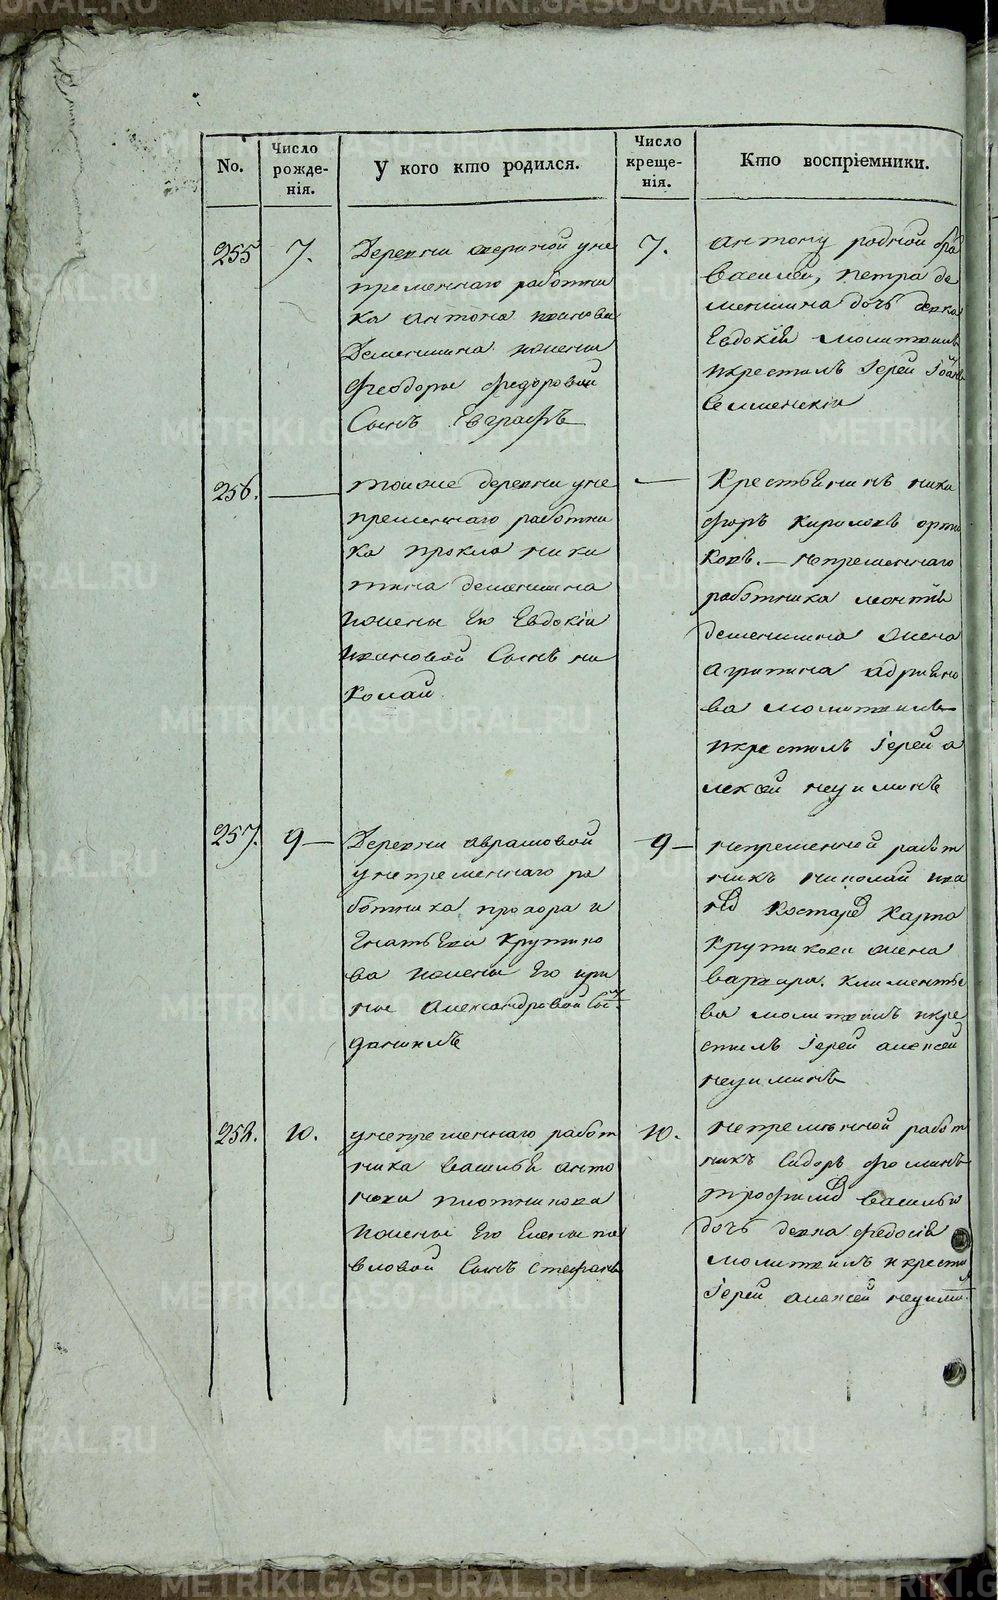 METRIKI.GASO-URAL.RU
No.
Число рожде-нія.
У кого кто родился.
Число креще-нія.
Кто воспріемники.
255
7.
Деревни озерной уне
пременнаго работни
ка антона иванова
Деменшина ижены
Феодоры федоровой
Сынъ Евграфъ
7.
антону родной бра
Василей, петра де
меншина дочь девка
Евдокія молитвилъ
икрестилъ Іерей Іоанъ
256.
тойже деревни уне
пременнаго работни
ка прокла ники
тина деменшина
ижены Его Евдокіи
ивановой Сынъ ни
колай
Крестьянинъ ники
форъ
ковъ. — непременнаго
работника леонтия
деменшина жена
агрипина адрияно
ва молитвилъ
икрестилъ Іерей а
лексей неуиминъ
257.
9 —
Деревни аврамовой
унепременнаго ра
ботника прохора и
гнатьева крутико
ва ижены Его ири
ны Александровой Сынъ
даниилъ
9 —
непременней работ
никъ николай ива
новъ карпа
крутикова жена
варвара климентье
ва молитвилъ икре
стилъ Іерей алексей
неуиминъ
258.
10.
унепременнаго работ
ника Василья анто
нова плотникова
ижены Его Елены па
вловой Сынъ стефанъ
10.
непремѣнной работ
никъ Сидоръ фоминъ
трофима Васильи
дочь девка федосія
молитвилъ икрести
Іерей алексей неуимин.